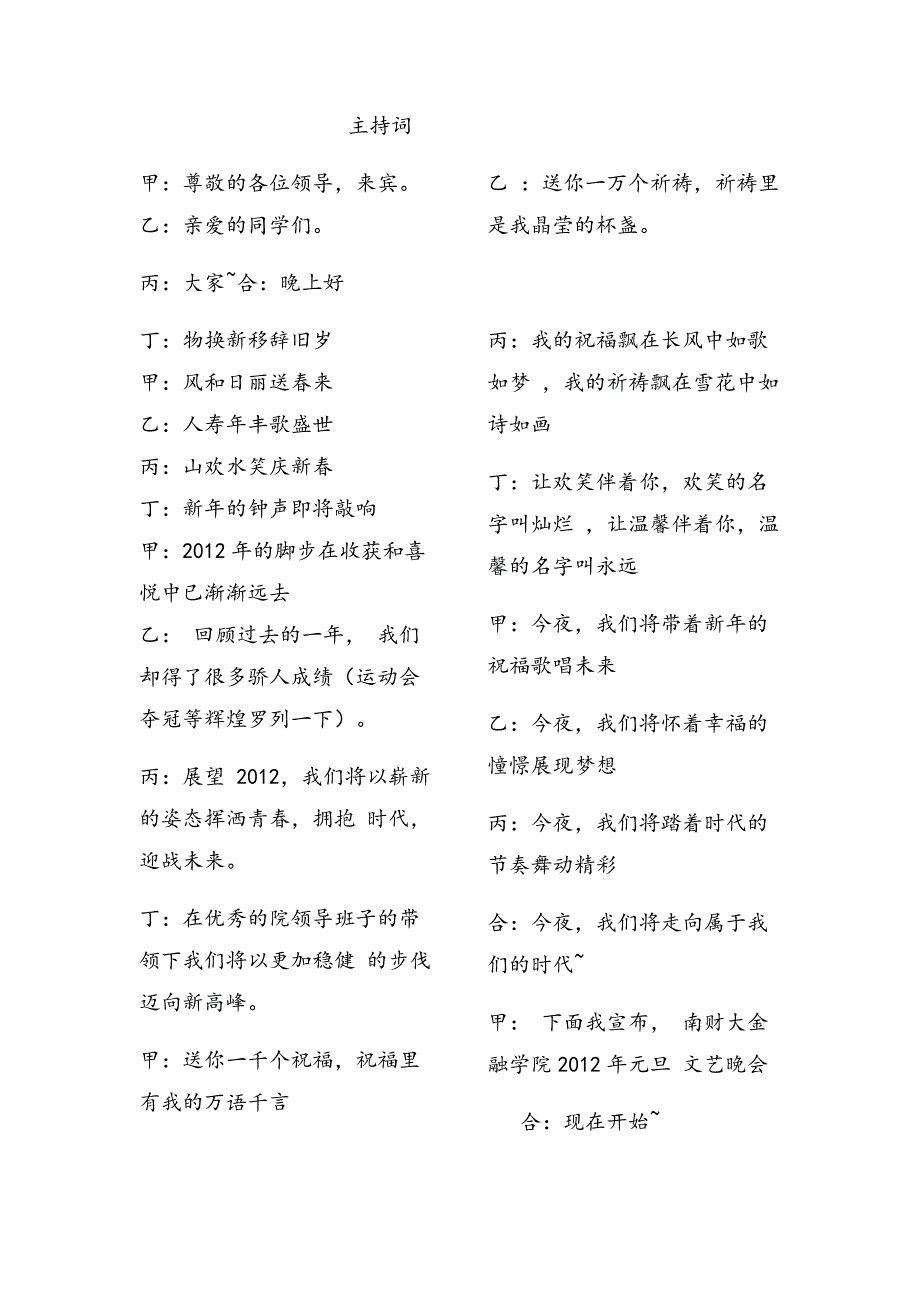 主持词
甲：尊敬的各位领导，来宾。
乙：亲爱的同学们。
丙：大家~合：晚上好
丁：物换新移辞旧岁
甲：风和日丽送春来
乙：人寿年丰歌盛世
丙：山欢水笑庆新春
丁：新年的钟声即将敲响
甲：2012 年的脚步在收获和喜
悦中已渐渐远去
乙： 回顾过去的一年， 我们
却得了很多骄人成绩（运动会
夺冠等辉煌罗列一下）。
丙：展望 2012，我们将以崭新
的姿态挥洒青春，拥抱 时代，
迎战未来。
丁：在优秀的院领导班子的带
领下我们将以更加稳健 的步伐
迈向新高峰。
甲：送你一千个祝福，祝福里
有我的万语千言
乙 ：送你一万个祈祷，祈祷里
是我晶莹的杯盏。
丙：我的祝福飘在长风中如歌
如梦 ，我的祈祷飘在雪花中如
诗如画
丁：让欢笑伴着你，欢笑的名
字叫灿烂 ，让温馨伴着你，温
馨的名字叫永远
甲：今夜，我们将带着新年的
祝福歌唱未来
乙：今夜，我们将怀着幸福的
憧憬展现梦想
丙：今夜，我们将踏着时代的
节奏舞动精彩
合：今夜，我们将走向属于我
们的时代~
甲： 下面我宣布， 南财大金
融学院 2012 年元旦 文艺晚会
合：现在开始~